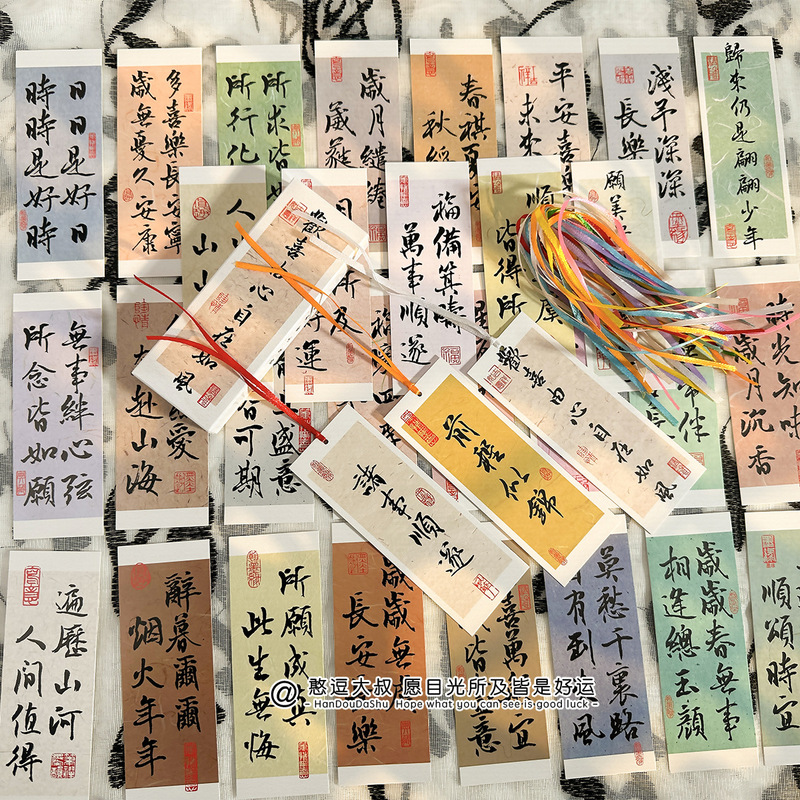 日日是好日
時時是好時
多喜樂長安寧
歲無憂久安康
所求皆
所行化
歲月繾綣
葳蕤
春祺夏
秋綏
平安喜
未來
淺予深深
長樂
歸來仍是翩翩少年
人
山山
歡喜由心自在如風
所及
福備箕疇
萬事順遂
順
皆得所
願美
無事絆心弦
所念皆如願
愛
赴山海
盛意
可期
諸事順遂
前程似錦
歡喜由心自在如風
常伴
時光知味
歲月沉香
遍歷山河
人间值得
辭暮爾爾
烟火年年
所願成真
此生無悔
歲歲無
長安樂
喜萬
皆意
莫愁千裏路
有到風
歲歲春無事
相逢總玉顏
順頌時宜
@憨逗大叔 愿目光所及皆是好运
- HanDouDaShu Hope what you can see is good luck -